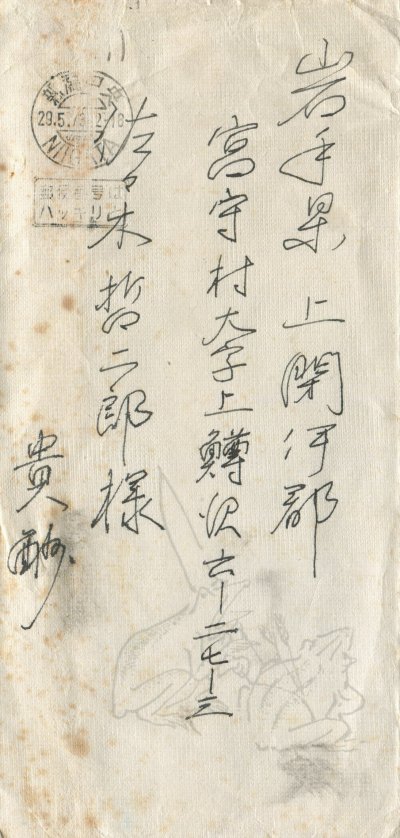 岩手県上閉伊郡
宮守村大字上鱒沢六ー二七ー三
佐々木哲二郎様
貴酬
新潟中央
29.5.73.12-18
NIIGATA
郵便番号は
ハッキリと